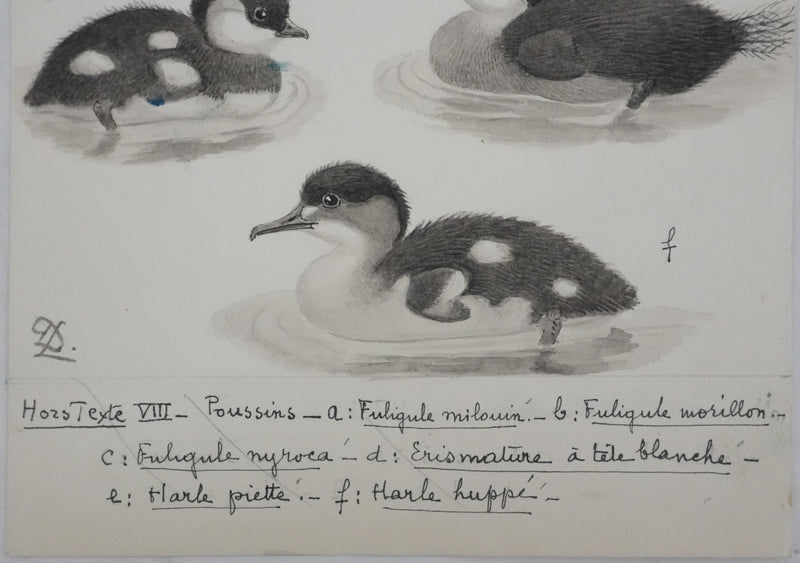 f
HorsTexte VIII_ Poussins _ a : Fuligule milouin. _ b : Fuligule morillon. _
c : Fuligule nyroca _ d : Erismature à tête blanche _
e : Harle piette . _ f : Harle huppé _